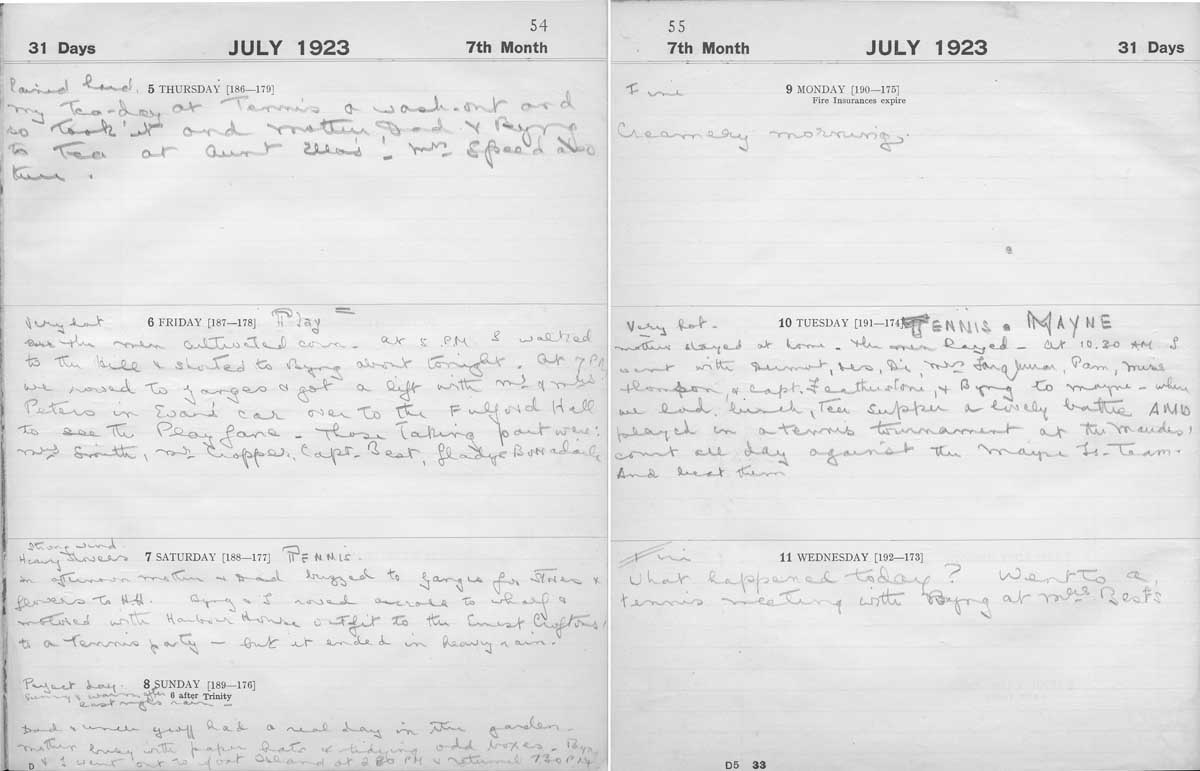 54
31 Days JULY 1923 7th Month
Rained hard. 5 THURSDAY [186—179]
my Tea-day at Tennis a wash-out and
so took it and mother Dad & Byng
to Tea at Aunt Ella's! - Mrs Speed also
there.
Very hot 6 FRIDAY [187—178] Play
The men cultivated corn. At 5 PM I walked
to the hill & shouted to Byng about tonight. At 7 PM
we rowed to Ganges & got a lift with Mr & Mrs
Peters in Evans car over to the Fulford Hall
to see the Play Jane - Those Taking part were:
Mrs Smith, Mr Cropper, Capt. Best, Gladys Borradaile
Strong wind
Heavy showers 7 SATURDAY [188—177] TENNIS.
In afternoon mother & Dad buzzed to Ganges for stores &
flowers to HH. Byng & I rowed across to wharf &
motored with Harbour House outfit to the Ernest Croftons'
to a tennis party - but it ended in heavy rain.
Perfect day. 8 SUNDAY [189—176]
Sunny & warm after 6 after Trinity
last nights rain -
Dad & uncle had a real day in the garden -
mother busy with paper hats & tidying odd boxes. Byng
& I went out to Goat Island at 2.30 PM & returned 7.30 PM
D
55
7th Month JULY 1923 31 Days
Fine 9 MONDAY [190—175]
Fire Insurances expire
Creamery morning.
Very hot. 10 TUESDAY [191—174] TENNIS. MAYNE
mother stayed at home. The men hayed - At 10.30 AM I
went with Dermot, Des, Di, Mrs Pam, Miss
Thompson, & Capt. Featherstone, & Byng to Mayne - where
we had lunch, Tea supper a lovely bathe AND
played in a tennis tournament at the Maudes'
court all day against the Mayne Is-Team.
And beat them
Fine 11 WEDNESDAY [192—173]
What happened today? Went to a
tennis meeting with Byng at Mrs Best's
D5 33